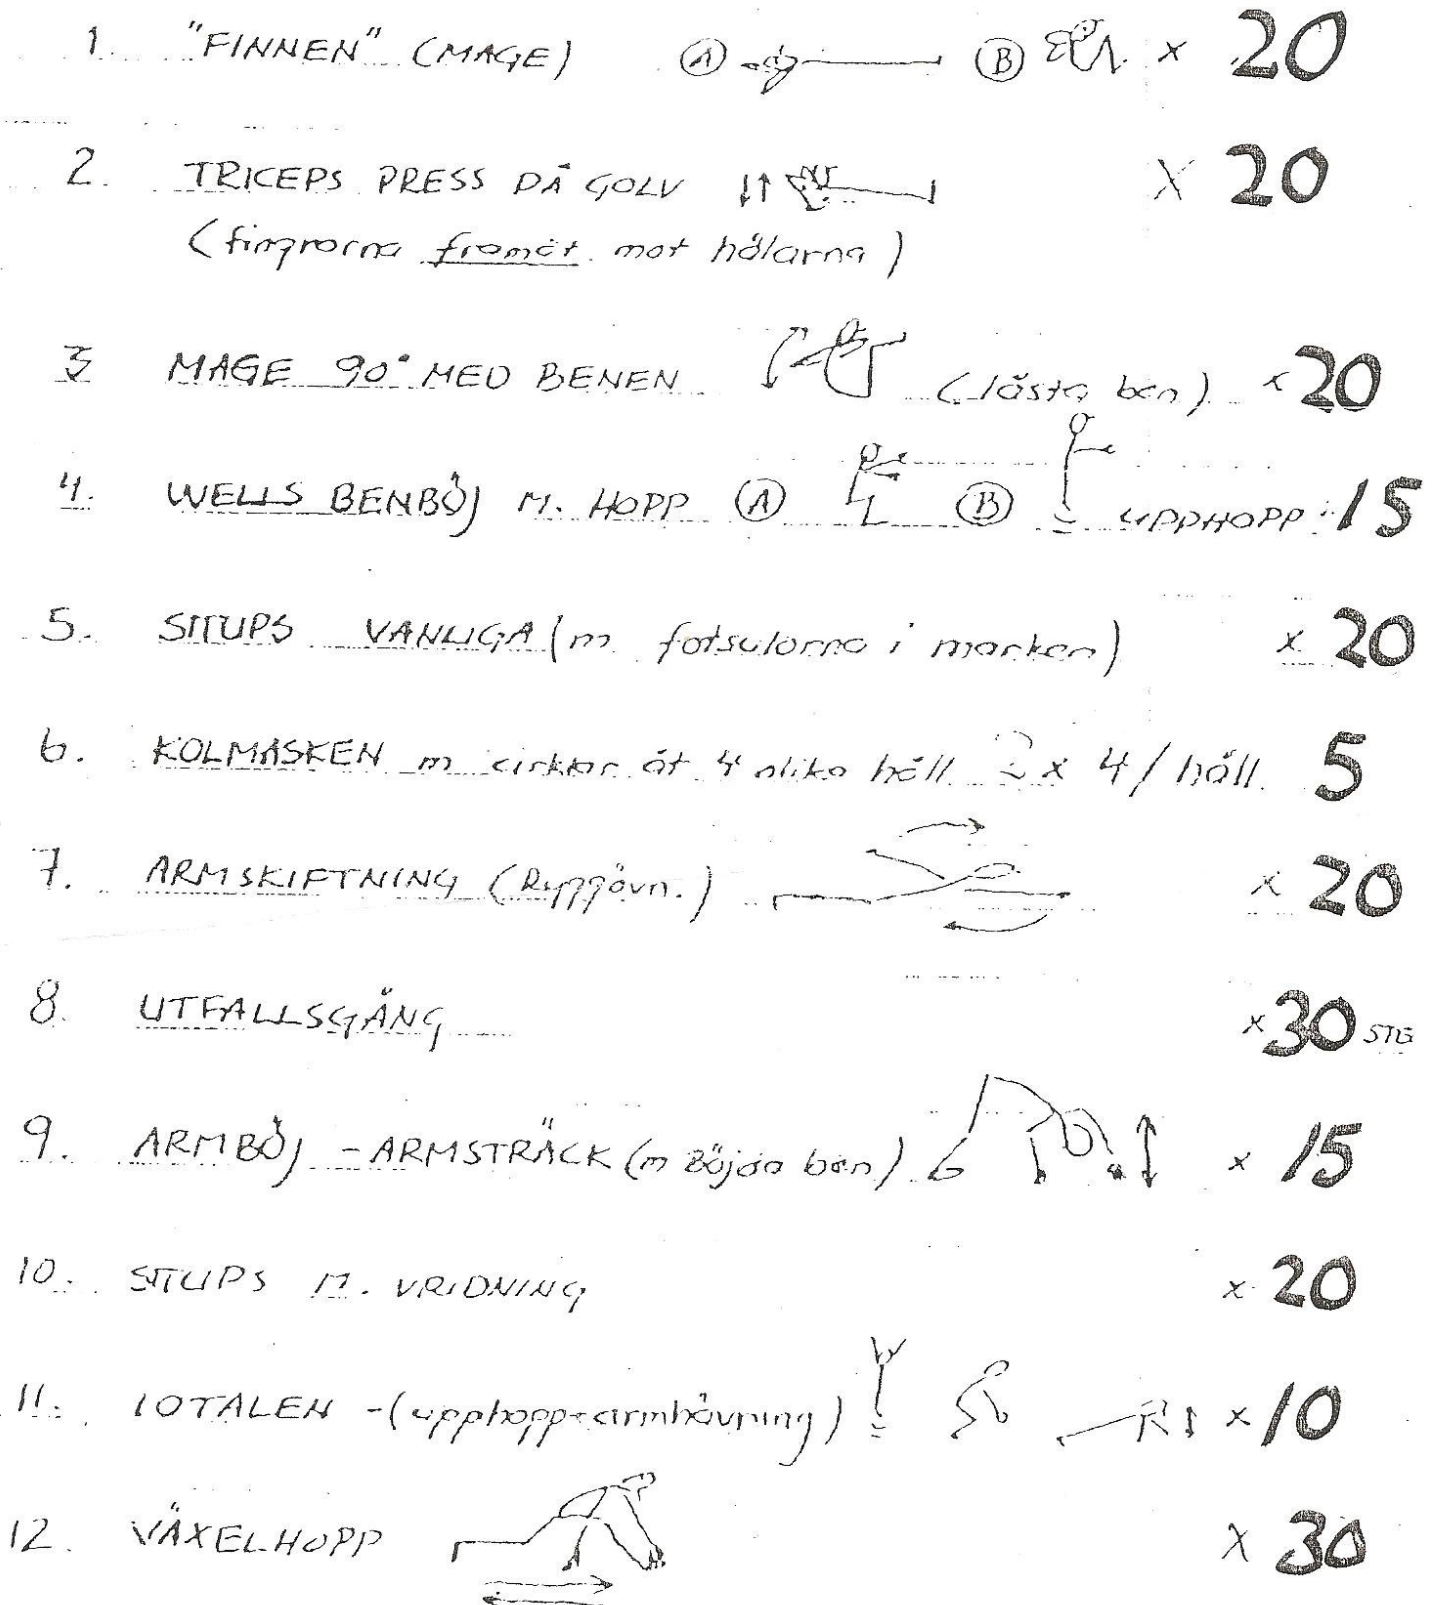 1. "FINNEN" (MAGE) Ⓐ Ⓑ x 20
2. TRICEPS PRESS PÅ GOLV x 20
(fingrarna framåt mot hälarna)
3 MAGE 90° MED BENEN (låsta ben) x 20
4. WELLS BENBÖJ M. HOPP Ⓐ Ⓑ UPPHOPP 15
5. SITUPS VANLIGA (m fotsulorna i marken) x 20
6. KOLMASKEN m cirklar åt 4 olika håll x 4/håll. 5
7. ARMSKIFTNING (Ryggövn.) x 20
8. UTFALLSGÅNG x 30 STG
9. ARMBÖJ - ARMSTRÄCK (m Böjda ben) x 15
10. SITUPS M. VRIDNING x 20
11. 10TALEN - (upphopp + armhävning) x 10
12. VÄXELHOPP x 30